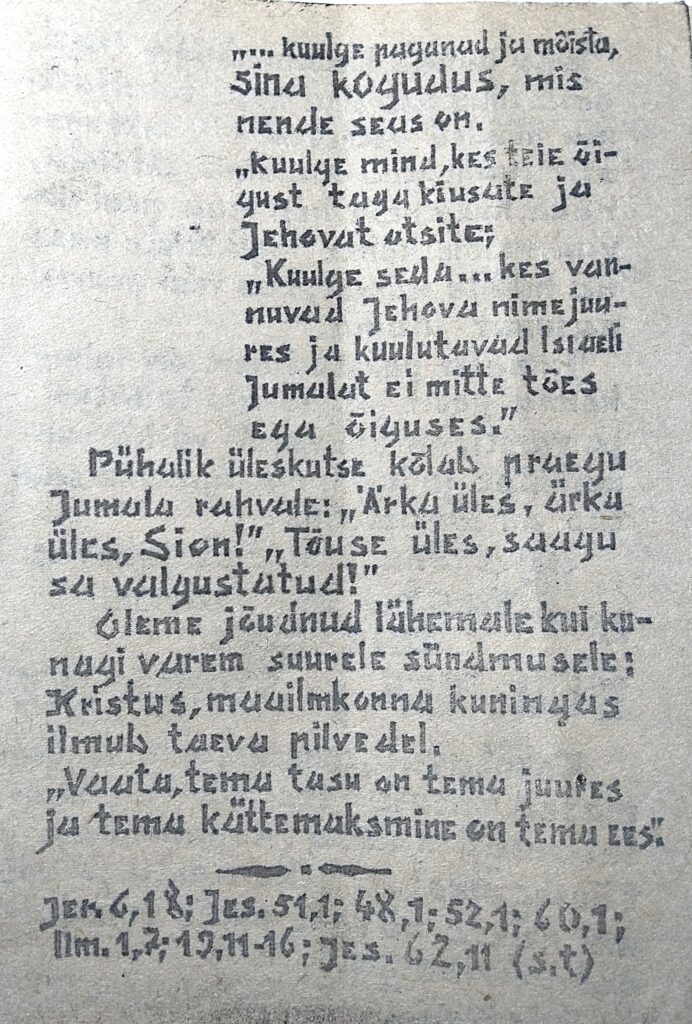 „... kuulge paganad ja mõista,
sina kogudus, mis
nende seas on.
„Kuulge mind, kes teie õi-
gust taga kiusate ja
Jehovat otsite;
„Kuulge seda... kes van-
nuvad Jehova nime juu-
res ja kuulutavad Israeli
Jumalat ei mitte tões
ega õiguses."
Pühalik üleskutse kõlab praegu
Jumala rahvale: „Ärka üles, ärka
üles, Sion!" „Tõuse üles, saagu
sa valgustatud!"
Oleme jõudnud lähemale kui ku-
nagi varem suurele sündmusele:
Kristus, maailmkonna kuningas
ilmub taeva pilvedel.
„Vaata, tema tasu on tema juures
ja tema kättemaksmine on tema ees".
Jer. 6,18; Jes. 51,1; 48,1; 52,1; 60,1;
Ilm. 1,7; 19,11-16; Jes. 62,11 (s.t)